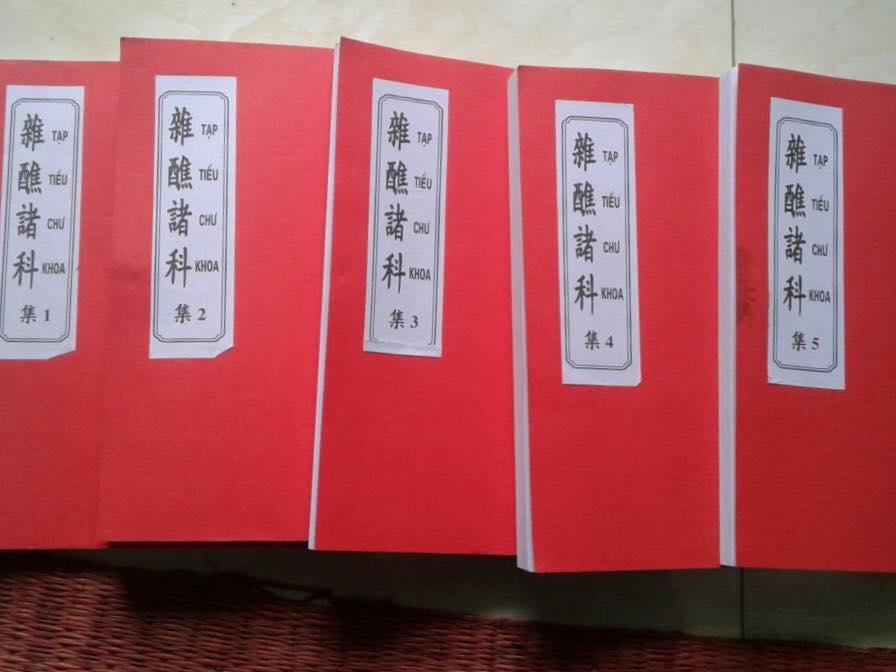 雜 TẠP
醮 TIẾU
諸 CHƯ
科 KHOA
集 1
雜 TẠP
醮 TIẾU
諸 CHƯ
科 KHOA
集 2
雜 TẠP
醮 TIẾU
諸 CHƯ
科 KHOA
集 3
雜 TẠP
醮 TIẾU
諸 CHƯ
科 KHOA
集 4
雜 TẠP
醮 TIẾU
諸 CHƯ
科 KHOA
集 5